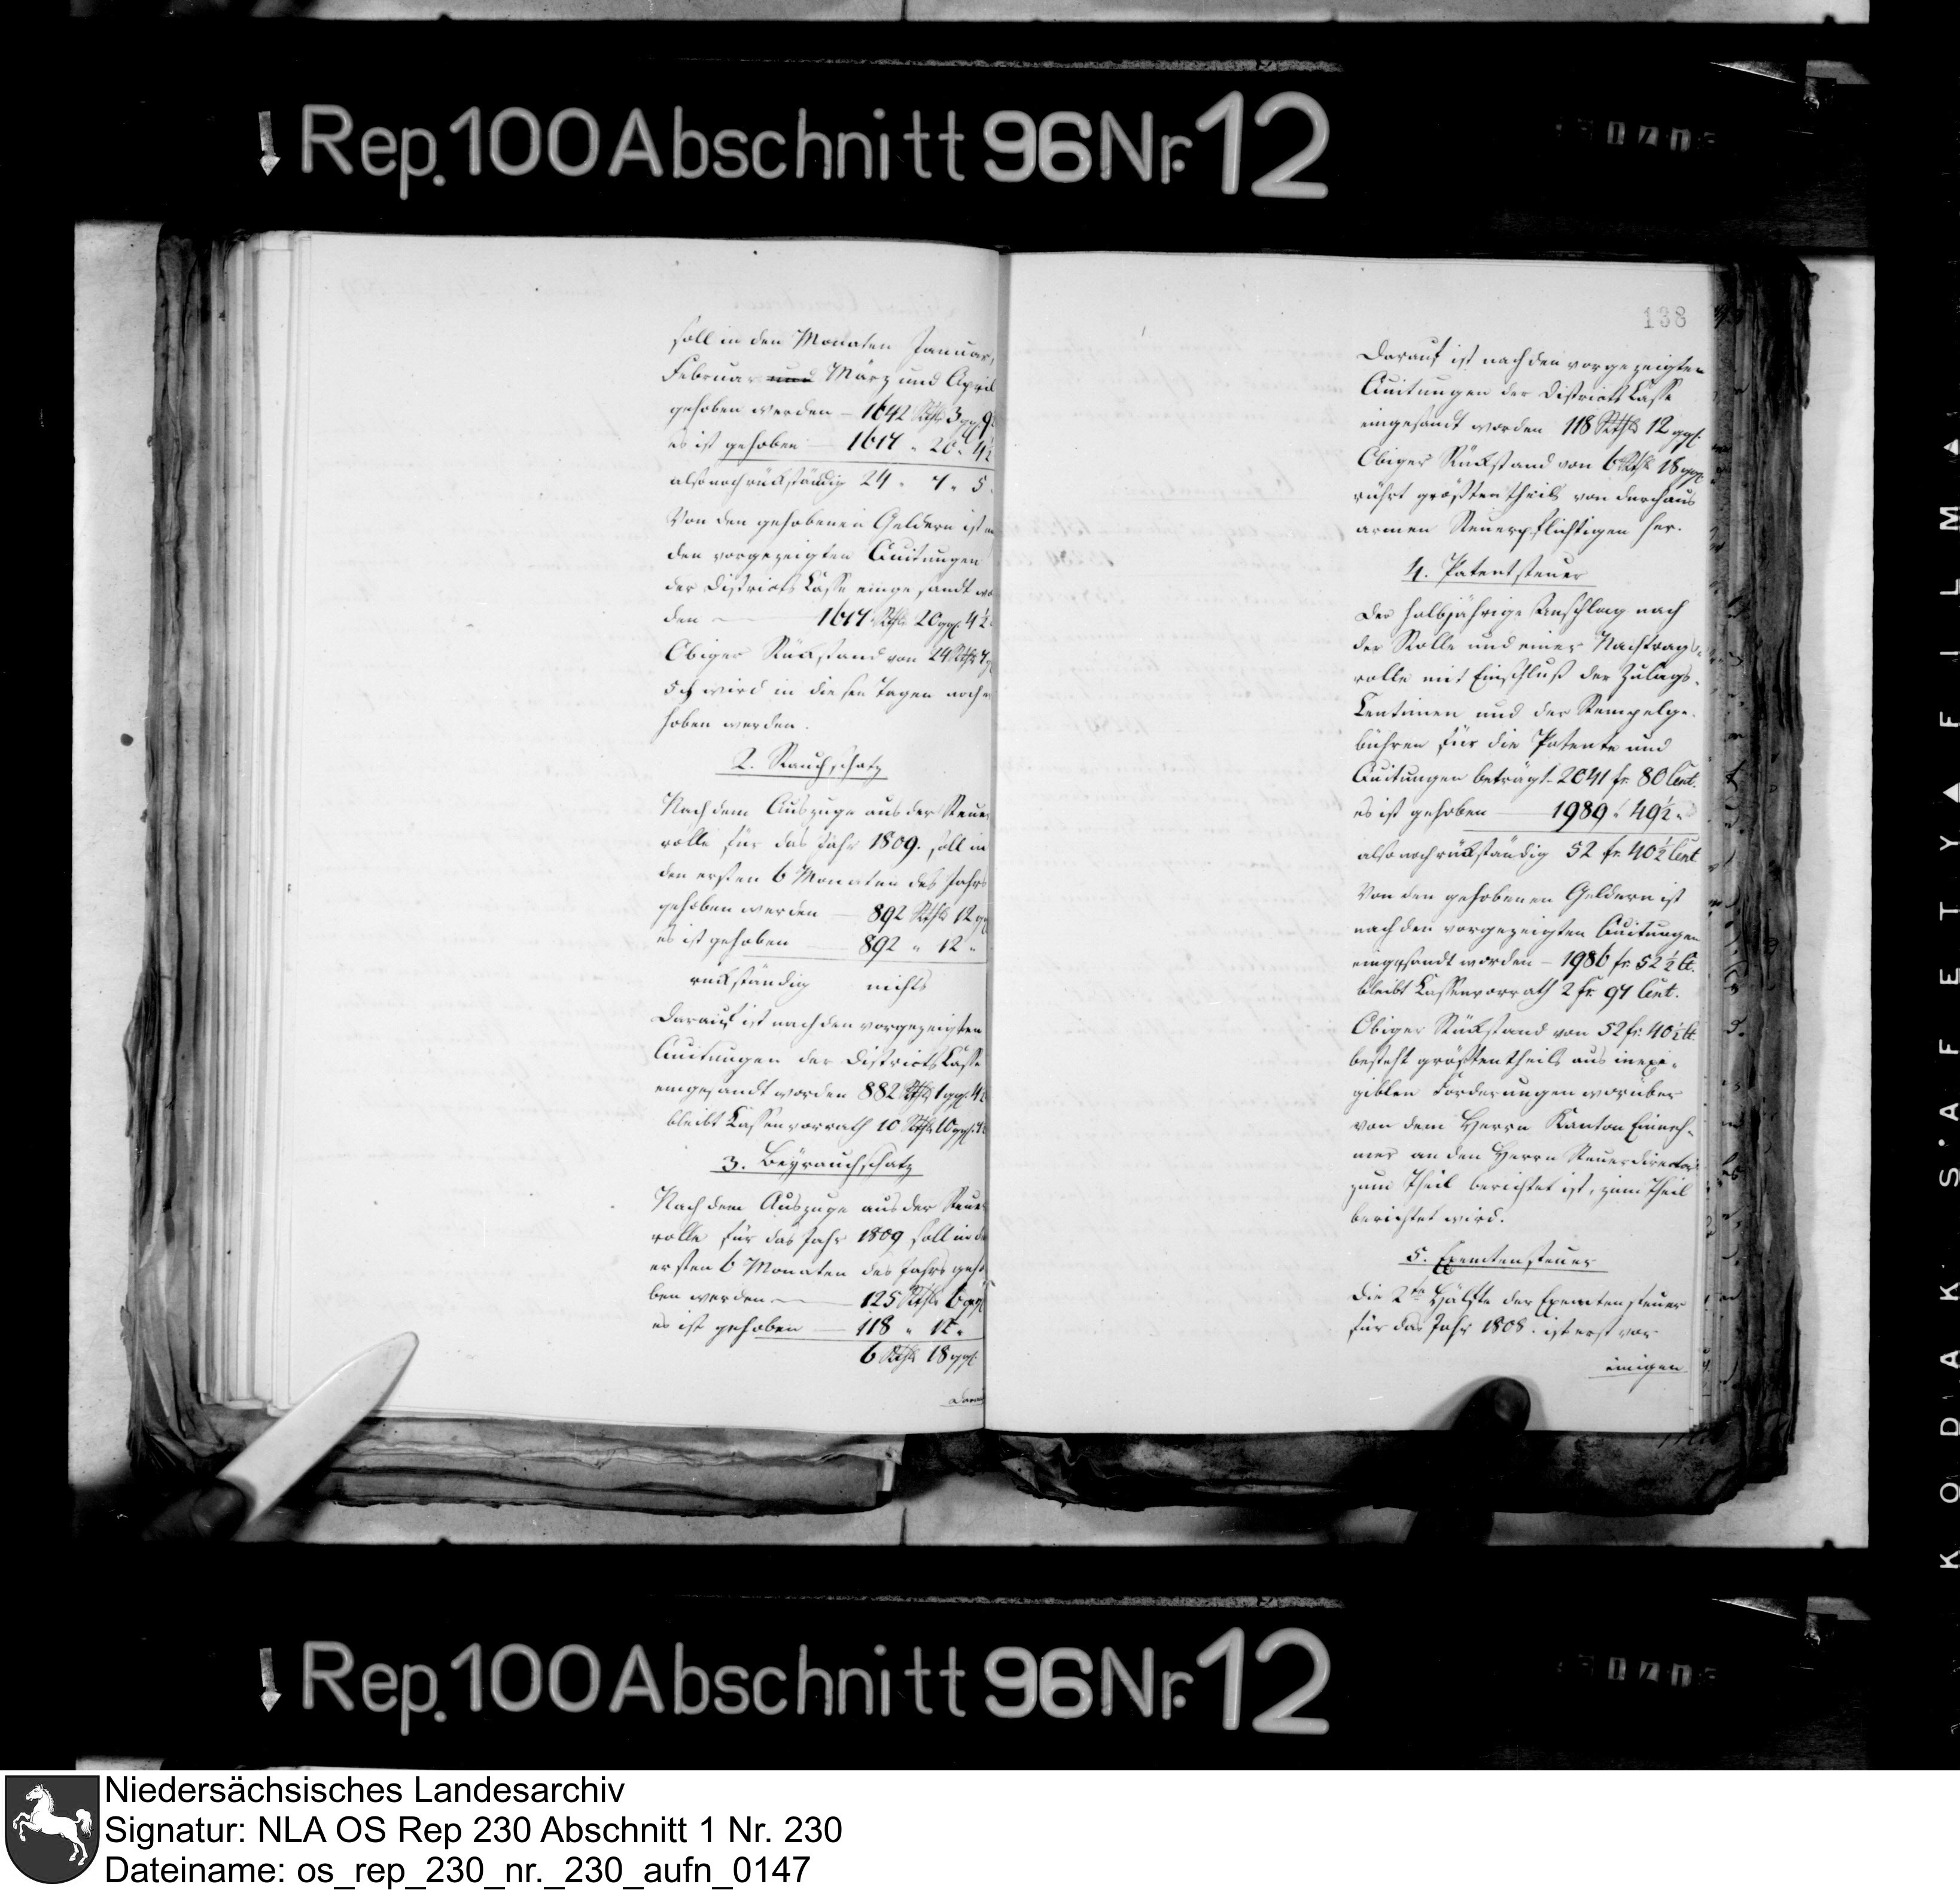 Rep. 100 Abschnitt 96 Nr. 12
soll in den Monaten Januar,
Februar und März und April
gehoben werden – 1642 Rthlr 3 ggl. 9
es ist gehoben – 1617 " 20 " 4½
also noch rückständig 24 " 7 " 5
Von den gehobenen Geldern ist
den vorgezeigten Quitungen
der Districts Casse eingesandt wor
den – 1617 Rthlr 20 ggl. 4½
Obiger Rückstand von 24 Rthlr 7
5 ₰ wird in diesen Tagen noch
hoben werden.
2. Rauchschatz
Nach dem Auszuge aus der Steuer
rolle für das Jahr 1809. soll in
den ersten 6 Monaten des Jahrs
gehoben werden – 892 Rthlr 12 gg
es ist gehoben – 892 " 12 "
rückständig nichts
Darauf ist nach den vorgezeigten
Quitungen der Districts Casse
eingesandt worden 882 Rthlr 1 ggl. 4
bleibt Cassenvorrath 10 Rthlr 10 ggl.
3. Beyrauchschatz
Nach dem Auszuge aus der Steuer
rolle für das Jahr 1809 soll in de
ersten 6 Monaten des Jahrs geho
ben werden – 125 Rthlr 6 ggl
es ist gehoben – 118 " 12 "
6 Rthlr 18 ggl.
Darau
138
Darauf ist nach den vorgezeigten
Quitungen der Districts Casse
eingesandt worden 118 Rthlr 12 ggl.
Obiger Rückstand von 6 Rthlr 18 ggl.
rührt größtentheils von durchaus
armen Steuerpflichtigen her.
4. Patentsteuer
Der halbjährige Anschlag nach
der Rolle und einer Nachtrags-
rolle mit Einschluß der Zulags-
Centimen und der Stempelge-
bühren für die Patente und
Quitungen beträgt – 2041 fr. 80 Cent.
es ist gehoben – 1989 " 49½ "
also noch rückständig 52 fr. 40½ Cent
Von den gehobenen Geldern ist
nach den vorgezeigten Quitungen
eingesandt worden – 1986 fr. 52½ Ct.
bleibt Cassenvorrath 2 fr. 97 Cent.
Obiger Rückstand von 52 fr. 40½ Ct.
besteht größtentheils aus inexi-
giblen Forderungen worüber
von dem Herrn Kanton Einneh-
mer an den Herrn Steuerdirector
zum Theil berichtet ist, zum Theil
berichtet wird.
5. Exemtensteuer
Die 2te Hälfte der Exemtensteuer
für das Jahr 1808. ist erst vor
einigen
KODAK SAFETY FILM
Rep. 100 Abschnitt 96 Nr. 12
Niedersächsisches Landesarchiv
Signatur: NLA OS Rep 230 Abschnitt 1 Nr. 230
Dateiname: os_rep_230_nr._230_aufn_0147